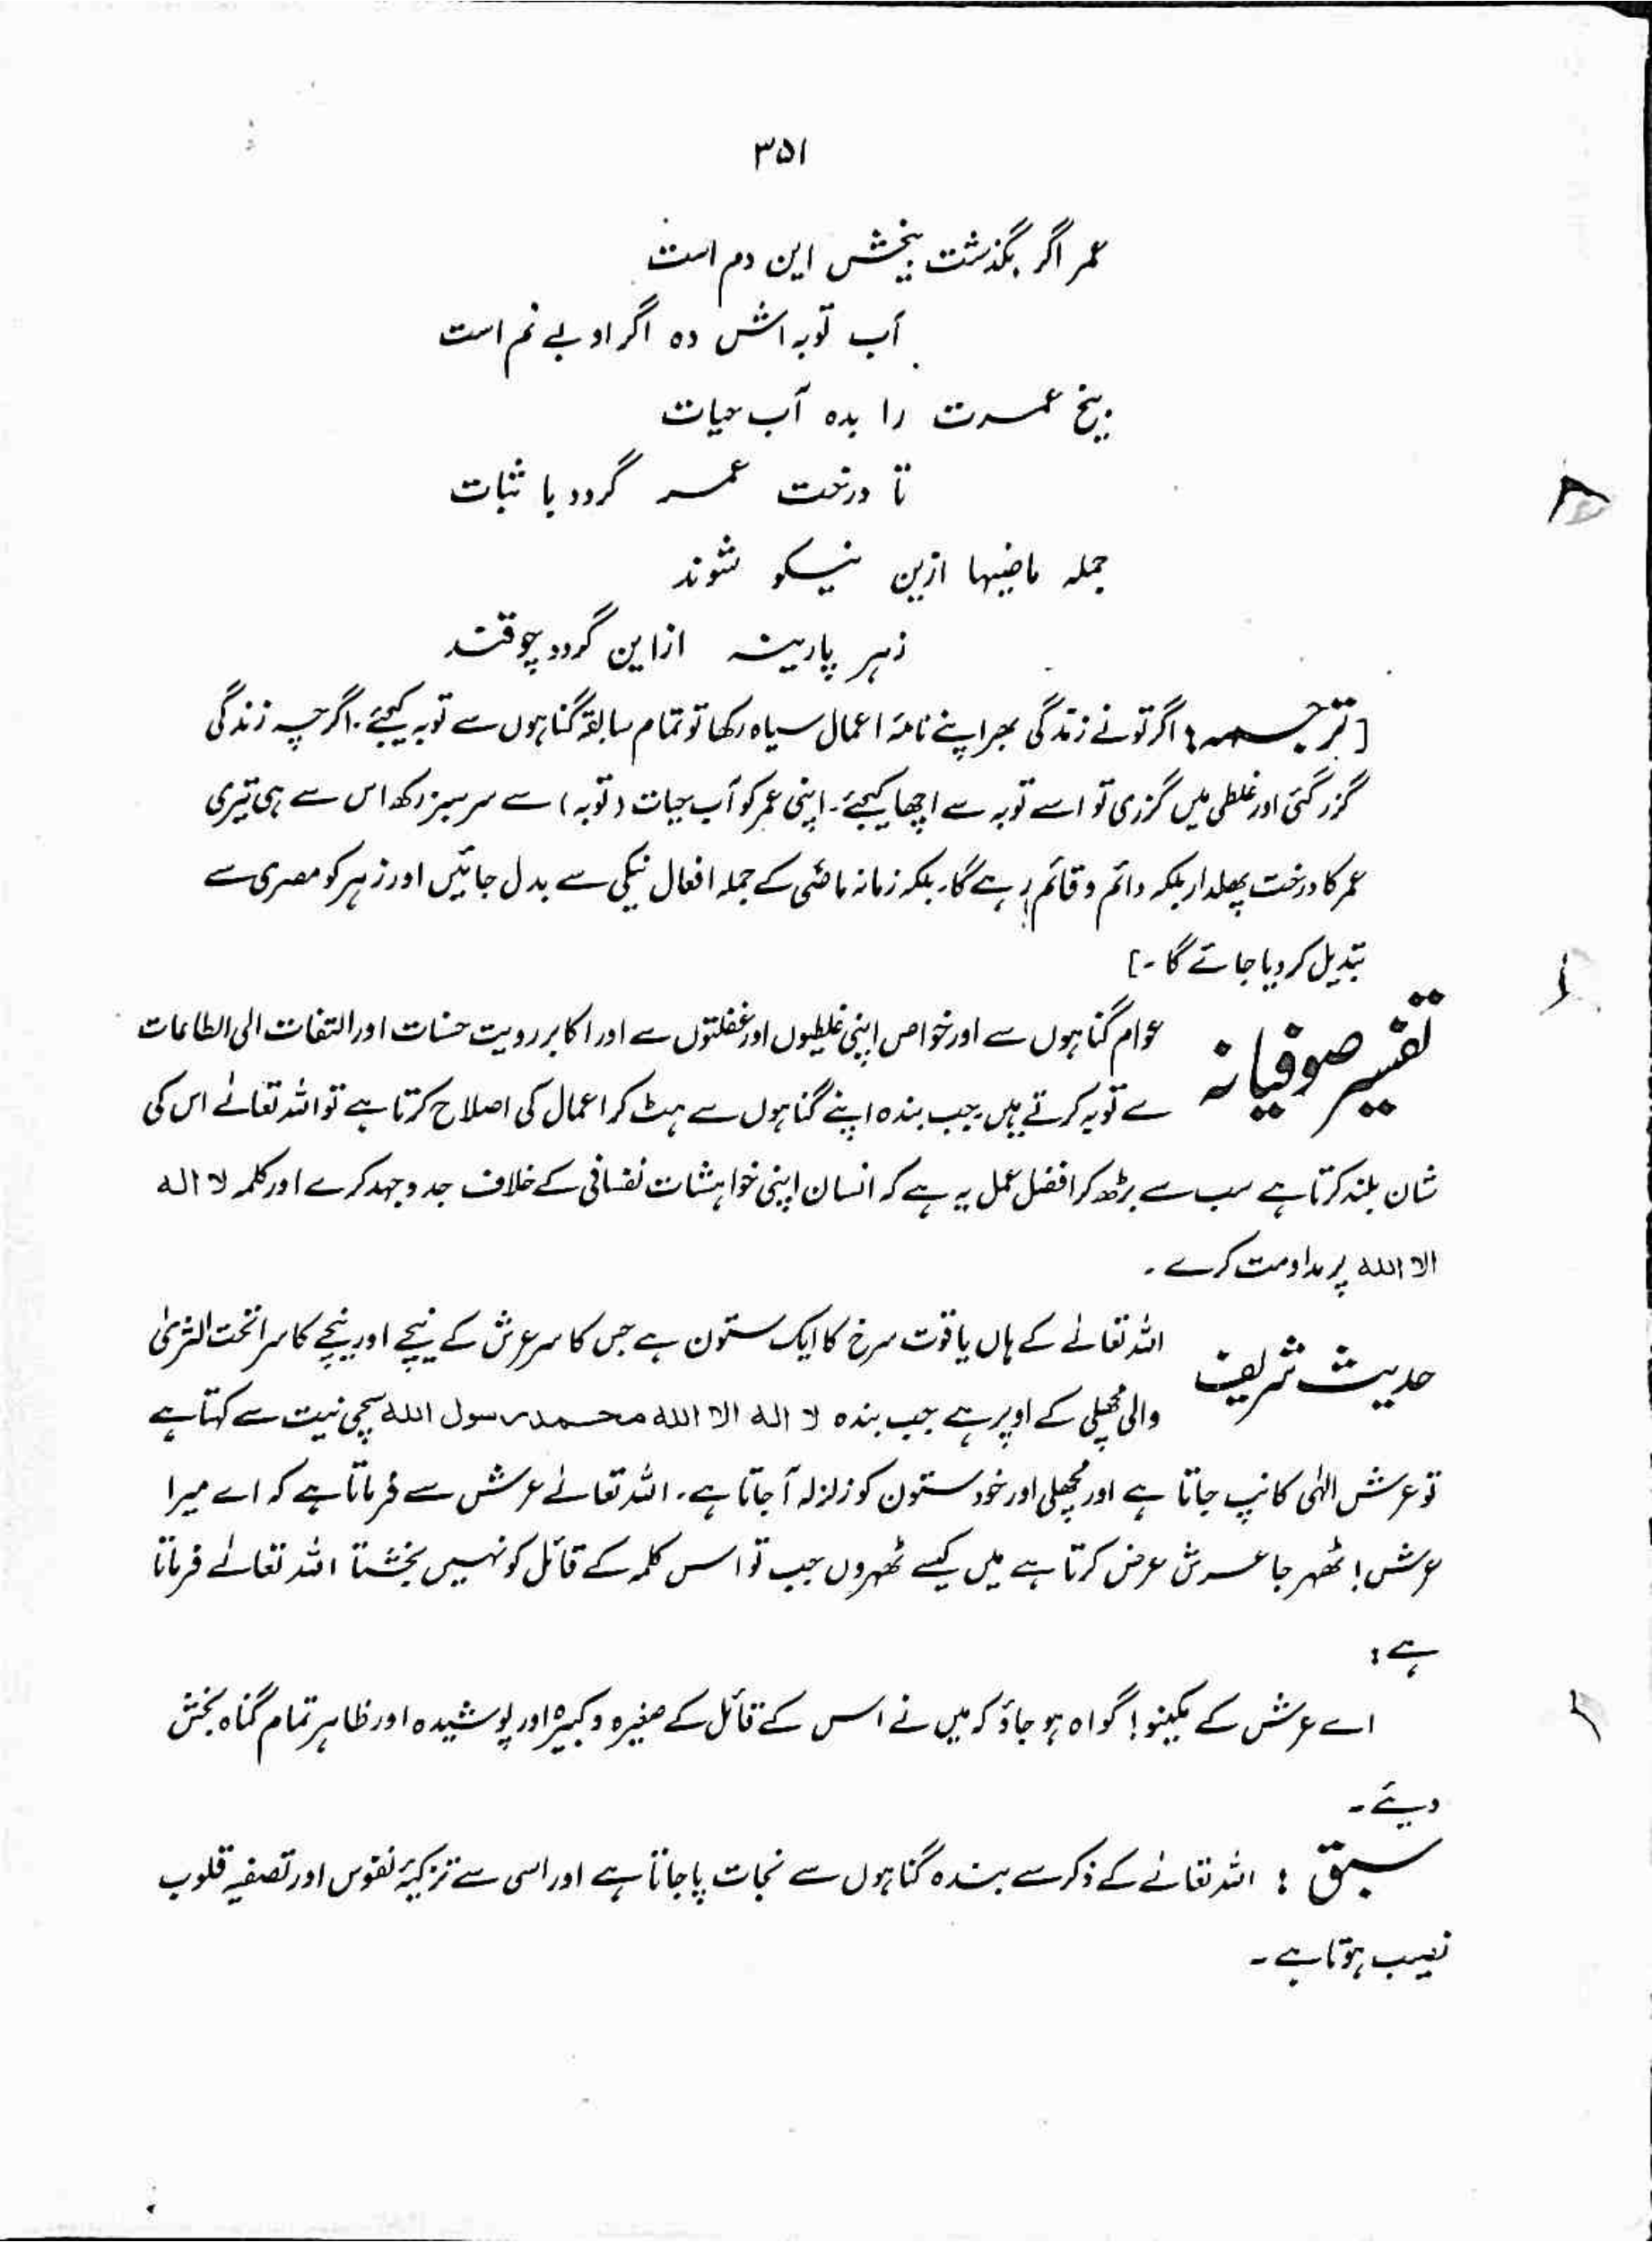 ۳۵۱
عمر اگر بگذشت بیخش این دم است
آب توبہ اش دہ اگر او بے نم است
بیخ عمرت را بدہ آب حیات
تا درخت عمر گردد با ثبات
جملہ ماضیہا ازین نیکو شوند
زہر پارینہ ازاین گردد چوقند
[ترجمہ: اگر تو نے زندگی بھر اپنے نامۂ اعمال سیاہ رکھا تو تمام سابقہ گناہوں سے توبہ کیجئے۔ اگرچہ زندگی
گزر گئی اور غلطی میں گزری تو اسے توبہ سے اچھا کیجئے۔ اپنی عمر کو آب حیات (توبہ) سے سرسبز رکھ اس سے ہی تیری
عمر کا درخت پھلدار بلکہ دائم و قائم رہے گا۔ بلکہ زمانہ ماضی کے جملہ افعال نیکی سے بدل جائیں اور زہر کو مصری سے
تبدیل کر دیا جائے گا۔]
تفسیر صوفیانہ عوام گناہوں سے اور خواص اپنی غلطیوں اور غفلتوں سے اور اکابر رویت حسنات اور التفات الی الطاعات
سے توبہ کرتے ہیں جب بندہ اپنے گناہوں سے ہٹ کر اعمال کی اصلاح کرتا ہے تو اللہ تعالےٰ اس کی
شان بلند کرتا ہے سب سے بڑھ کر افضل عمل یہ ہے کہ انسان اپنی خواہشات نفسانی کے خلاف جد و جہد کرے اور کلمہ لا الہ
الا اللہ پر مداومت کرے۔
حدیث شریف اللہ تعالےٰ کے ہاں یاقوت سرخ کا ایک ستون ہے جس کا سر عرش کے نیچے اور نیچے کا سرا تحت الثریٰ
والی مچھلی کے اوپر ہے جب بندہ لا الہ الا اللہ محمد رسول اللہ سچی نیت سے کہتا ہے
تو عرش الٰہی کانپ جاتا ہے اور مچھلی اور خود ستون کو زلزلہ آ جاتا ہے۔ اللہ تعالےٰ عرش سے فرماتا ہے کہ اے میرا
عرش! ٹھہر جا عرش عرض کرتا ہے میں کیسے ٹھہروں جب تو اس کلمہ کے قائل کو نہیں بخشتا اللہ تعالےٰ فرماتا
ہے:
اے عرش کے مکینو! گواہ ہو جاؤ کہ میں نے اس کے قائل کے صغیرہ و کبیرہ اور پوشیدہ اور ظاہر تمام گناہ بخش
دیئے۔
سبق : اللہ تعالےٰ کے ذکر سے بندہ گناہوں سے نجات پا جاتا ہے اور اسی سے تزکیۂ نفوس اور تصفیہ قلوب
نصیب ہوتا ہے۔